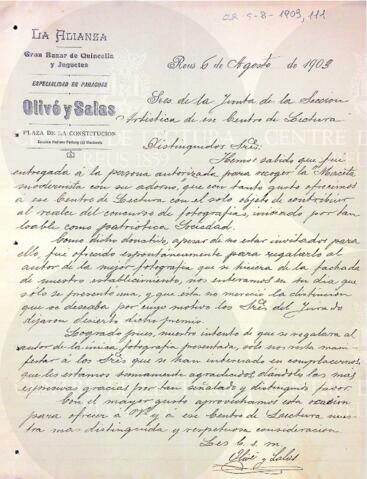 CR-5-8-1903, 111
LA ALIANZA
Gran Bazar de Quincalla
y Juguetes
ESPECIALIDAD EN PARAGUAS
Olivé y Salas
PLAZA DE LA CONSTITUCION
Reus 6 de Agosto de 1903
Sres de la Junta de la Sección
Artística de ese Centro de Lectura
Distinguidos Sres:
Hemos sabido que fué
entregada á la persona autorizada para recoger la Maceta
modernista con su adorno, que con tanto gusto ofrecimos
á ese Centro de Lectura con el solo objeto de contribuir
al realce del concurso de fotografías, iniciado por tan
loable como patriótica Sociedad.
Como dicho donativo, apesar de no estar invitados para
ello, fué ofrecido espontaneamente para regalarlo al
autor de la mejor fotografía que se hiciera de la fachada
de nuestro establecimiento, nos enteramos en su dia que
solo se presentó una, y que esta no merecía la distinción
que se deseaba por cuyo motivo los Sres del Jurado
dejaron desierto dicho premio.
Logrado pues, nuestro intento de que se regalara al
autor de la única fotografía presentada, solo nos resta mani-
festar á los Sres que se han interesado en complacernos,
que les estamos sumamente agradecidos dándoles las más
expresivas gracias por tan señalado y distinguido favor.
Con el mayor gusto aprovechamos esta ocasión
para ofrecer á Vds y á ese Centro de Lectura nues-
tra mas distinguida y respetuosa consideración.
Les b. s. m.
Olivé y Salas